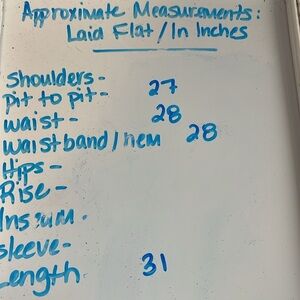 Approximate Measurements:
Laid Flat/In Inches
Shoulders- 27
Pit to pit-
waist- 28
waistband/hem 28
Hips-
Rise-
Inseam.
sleeve-
Length 31